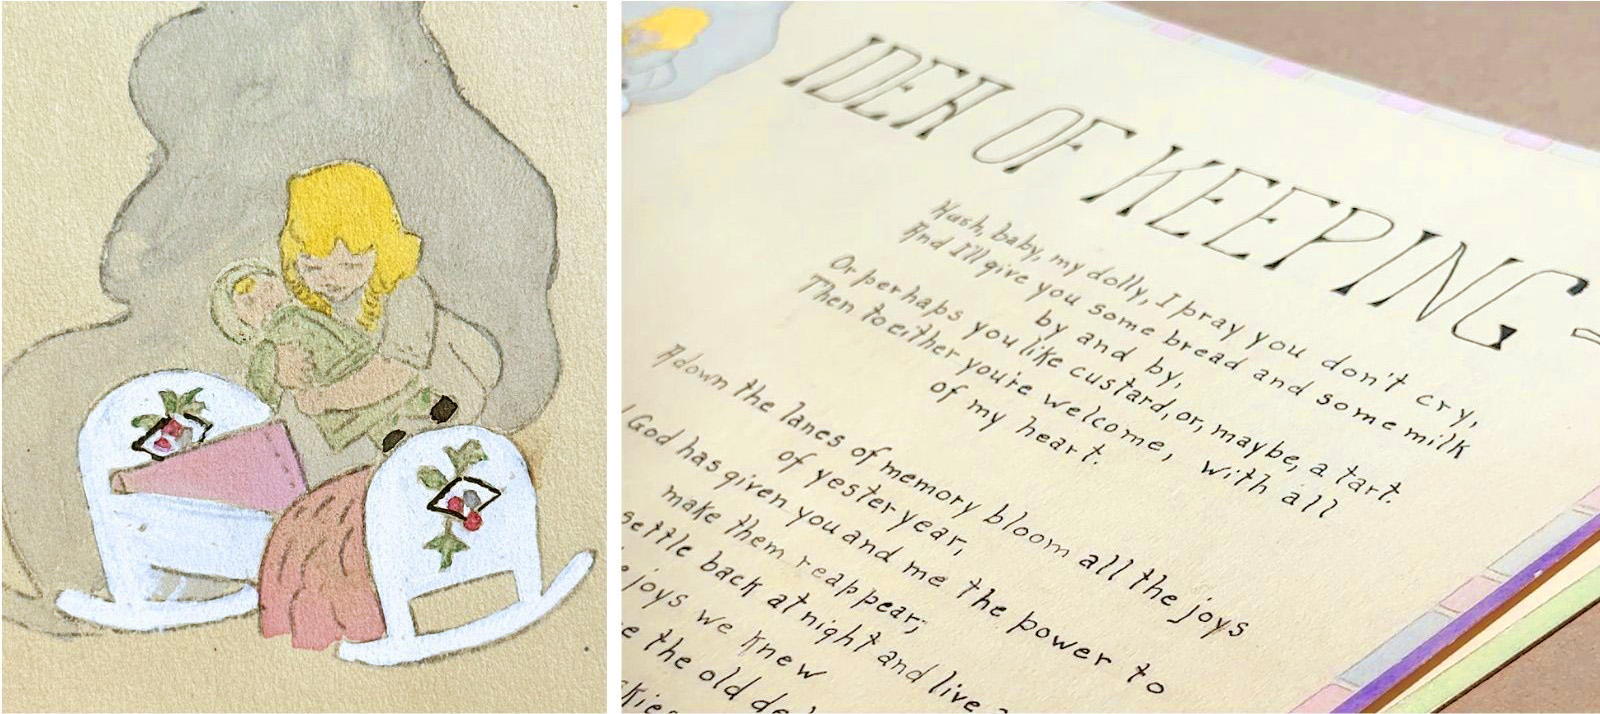 IDEA OF KEEPING
Hush, baby, my dolly, I pray you don't cry,
And I'll give you some bread and some milk
by and by,
Or perhaps you like custard, or, maybe, a tart.
Then to either you're welcome, with all
of my heart.
Adown the lanes of memory bloom all the joys
of yesteryear,
God has given you and me the power to
make them reappear;
settle back at night and live
joys we knew
the old